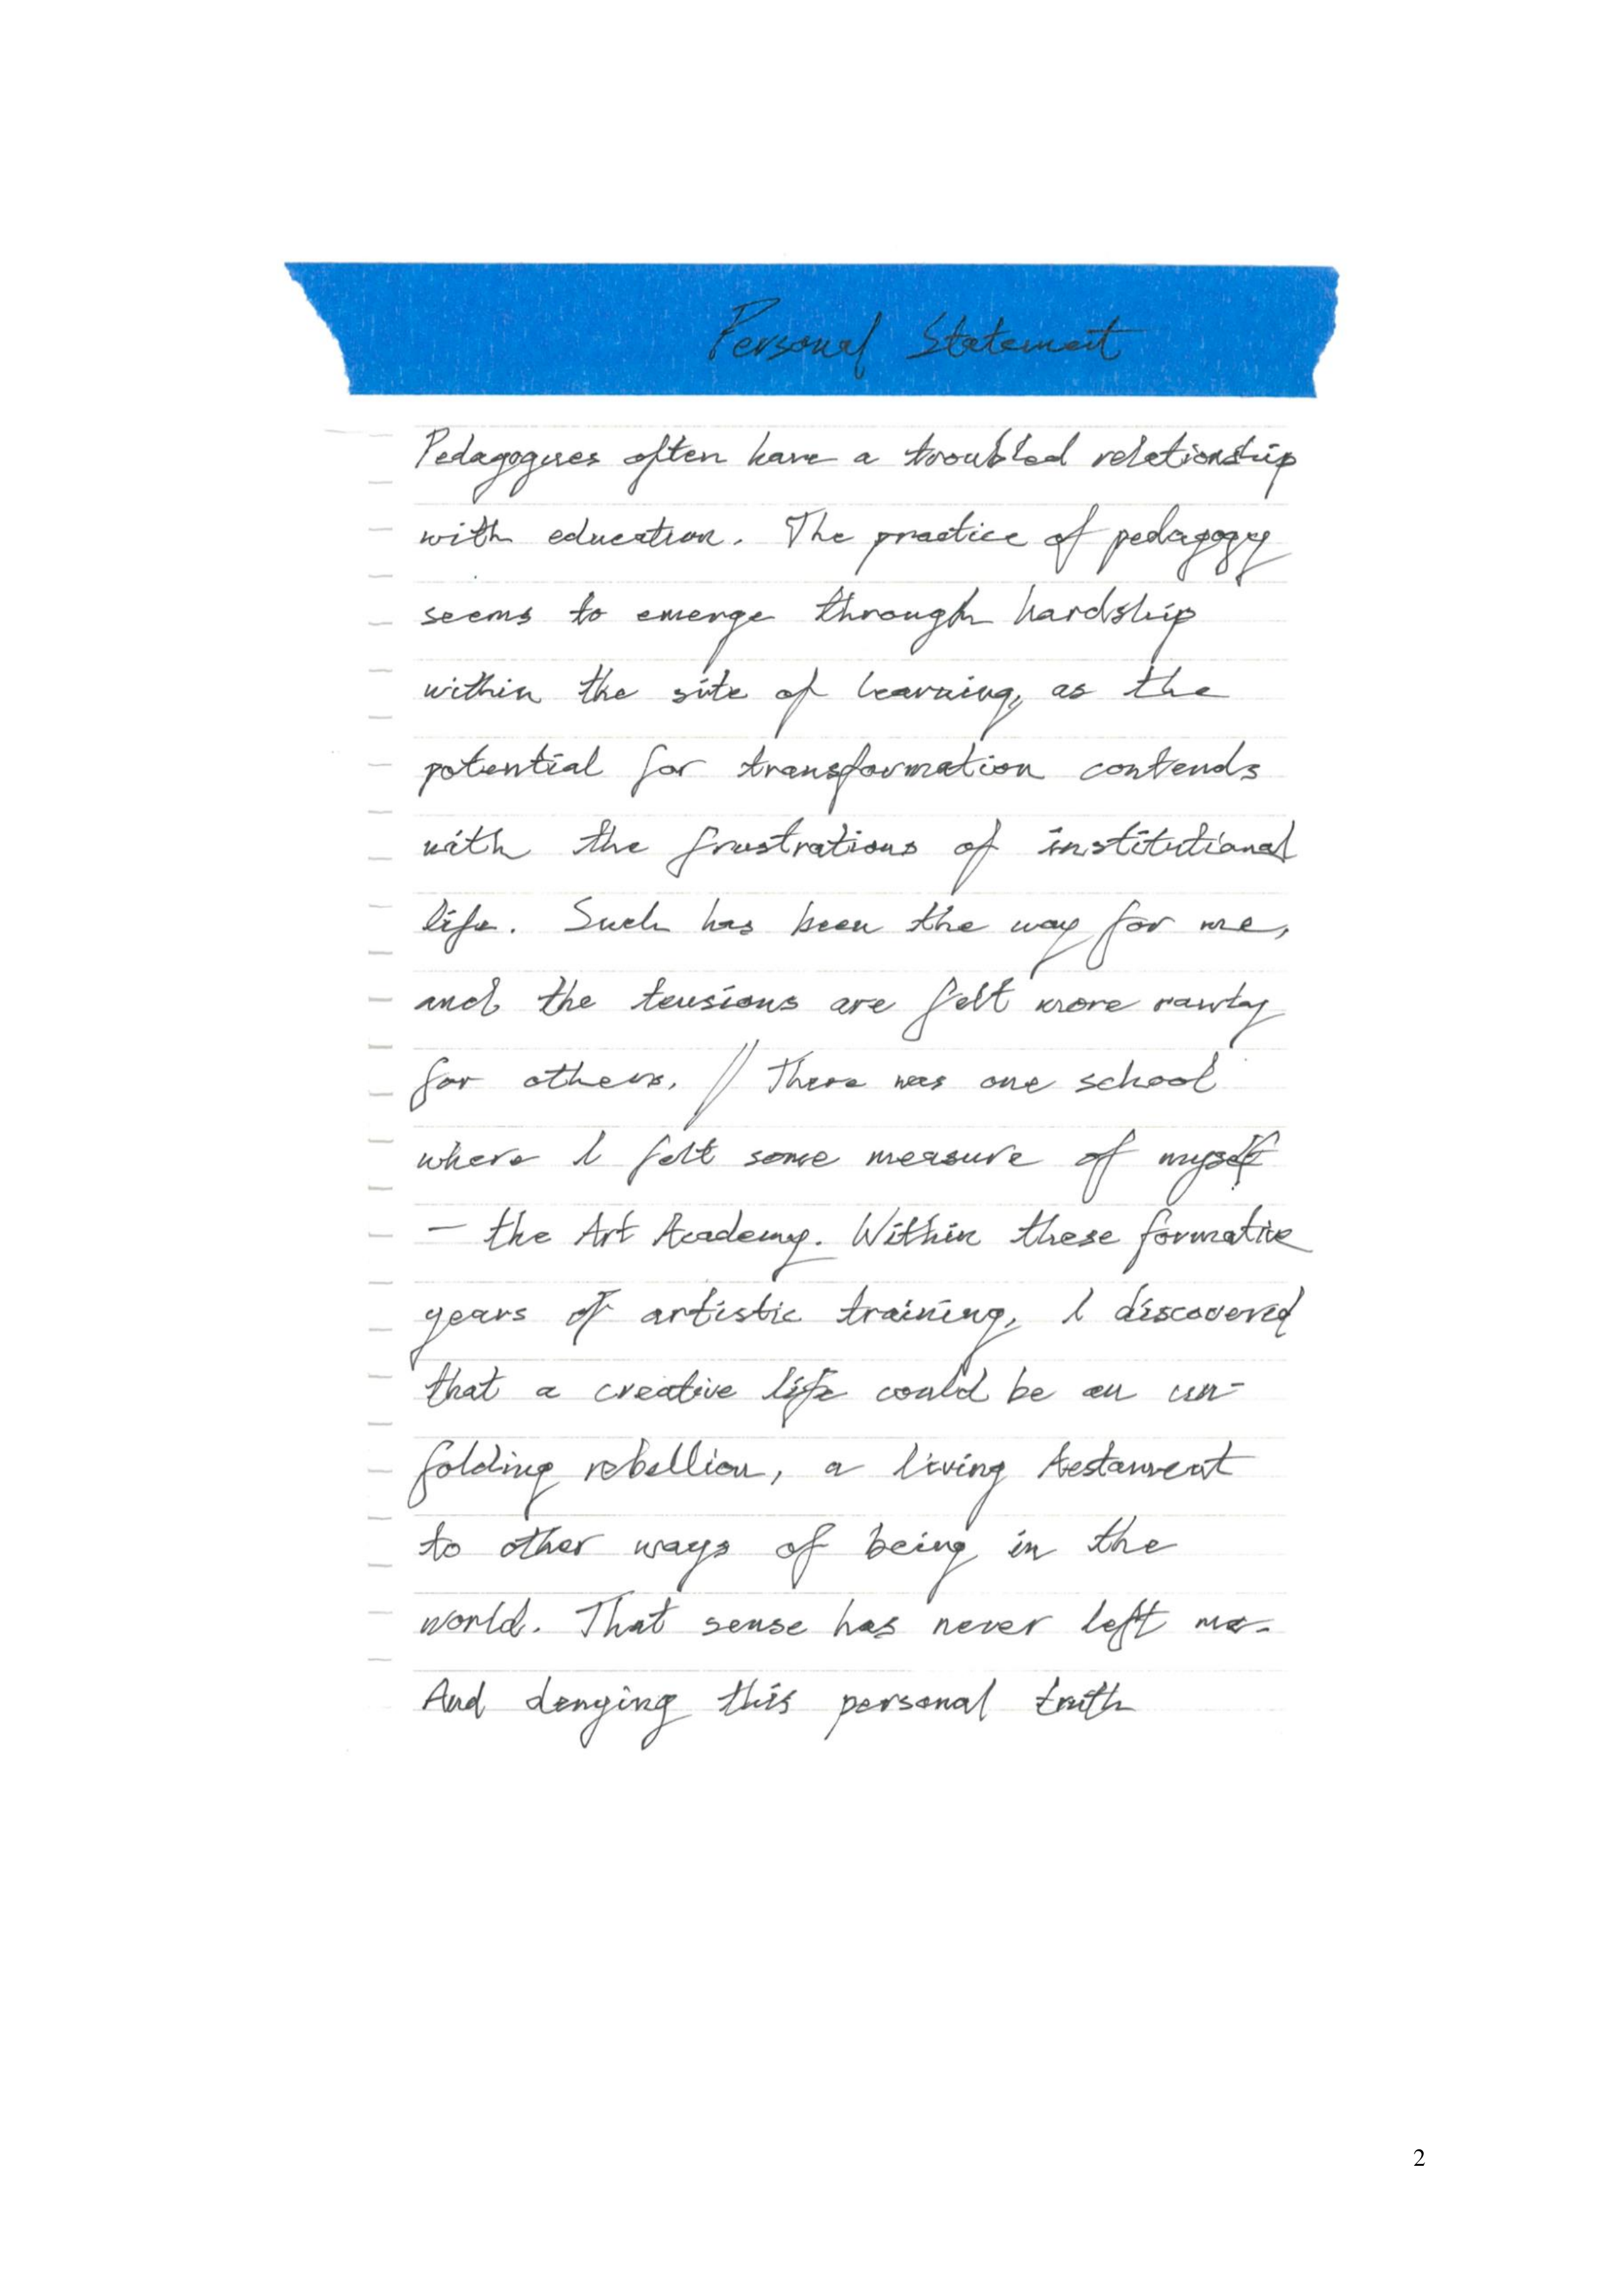 Personal Statement
Pedagogues often have a troubled relationship
with education. The practice of pedagogy
seems to emerge through hardship
within the site of learning, as the
potential for transformation contends
with the frustrations of institutional
life. Such has been the way for me,
and the tensions are felt more rawly
for others. // There was one school
where I felt some measure of myself
— the Art Academy. Within these formative
years of artistic training, I discovered
that a creative life could be an un-
folding rebellion, a living testament
to other ways of being in the
world. That sense has never left me.
And denying this personal truth
2